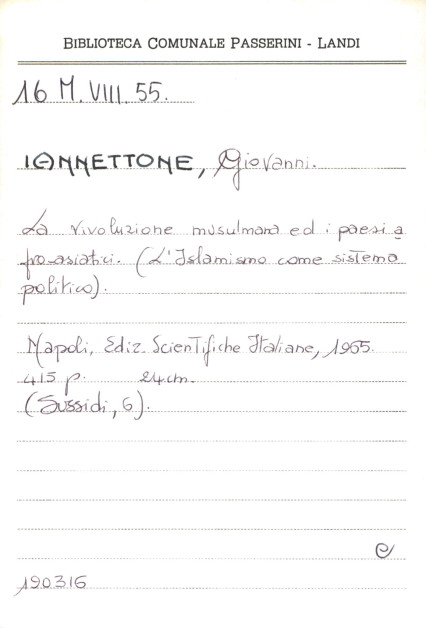 BIBLIOTECA COMUNALE PASSERINI - LANDI
16 M. VIII. 55.
IANNETTONE, Giovanni.
La rivoluzione musulmana ed i paesi a
fro-asiatici. (L'Islamismo come sistema
politico).
Napoli, Ediz. Scientifiche Italiane, 1965.
415 p. 24 cm.
(Sussidi, 6).
e
190316